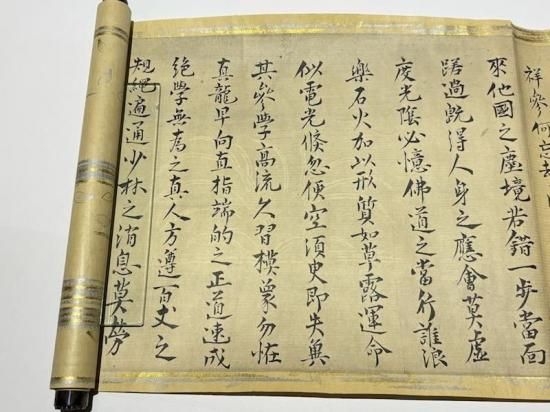 祥參何忘
來他國之塵境若錯一步當面
蹉過既得人身之應會莫虛
度光陰必憶佛道之當行誰浪
樂石火加以形質如草露運命
似電光倏忽便空須臾即失冀
其參學高流久習模象勿恠
真龍早向直指端的之正道速成
絶學無為之真人方遵百丈之
規縄遍通少林之消息莫勞